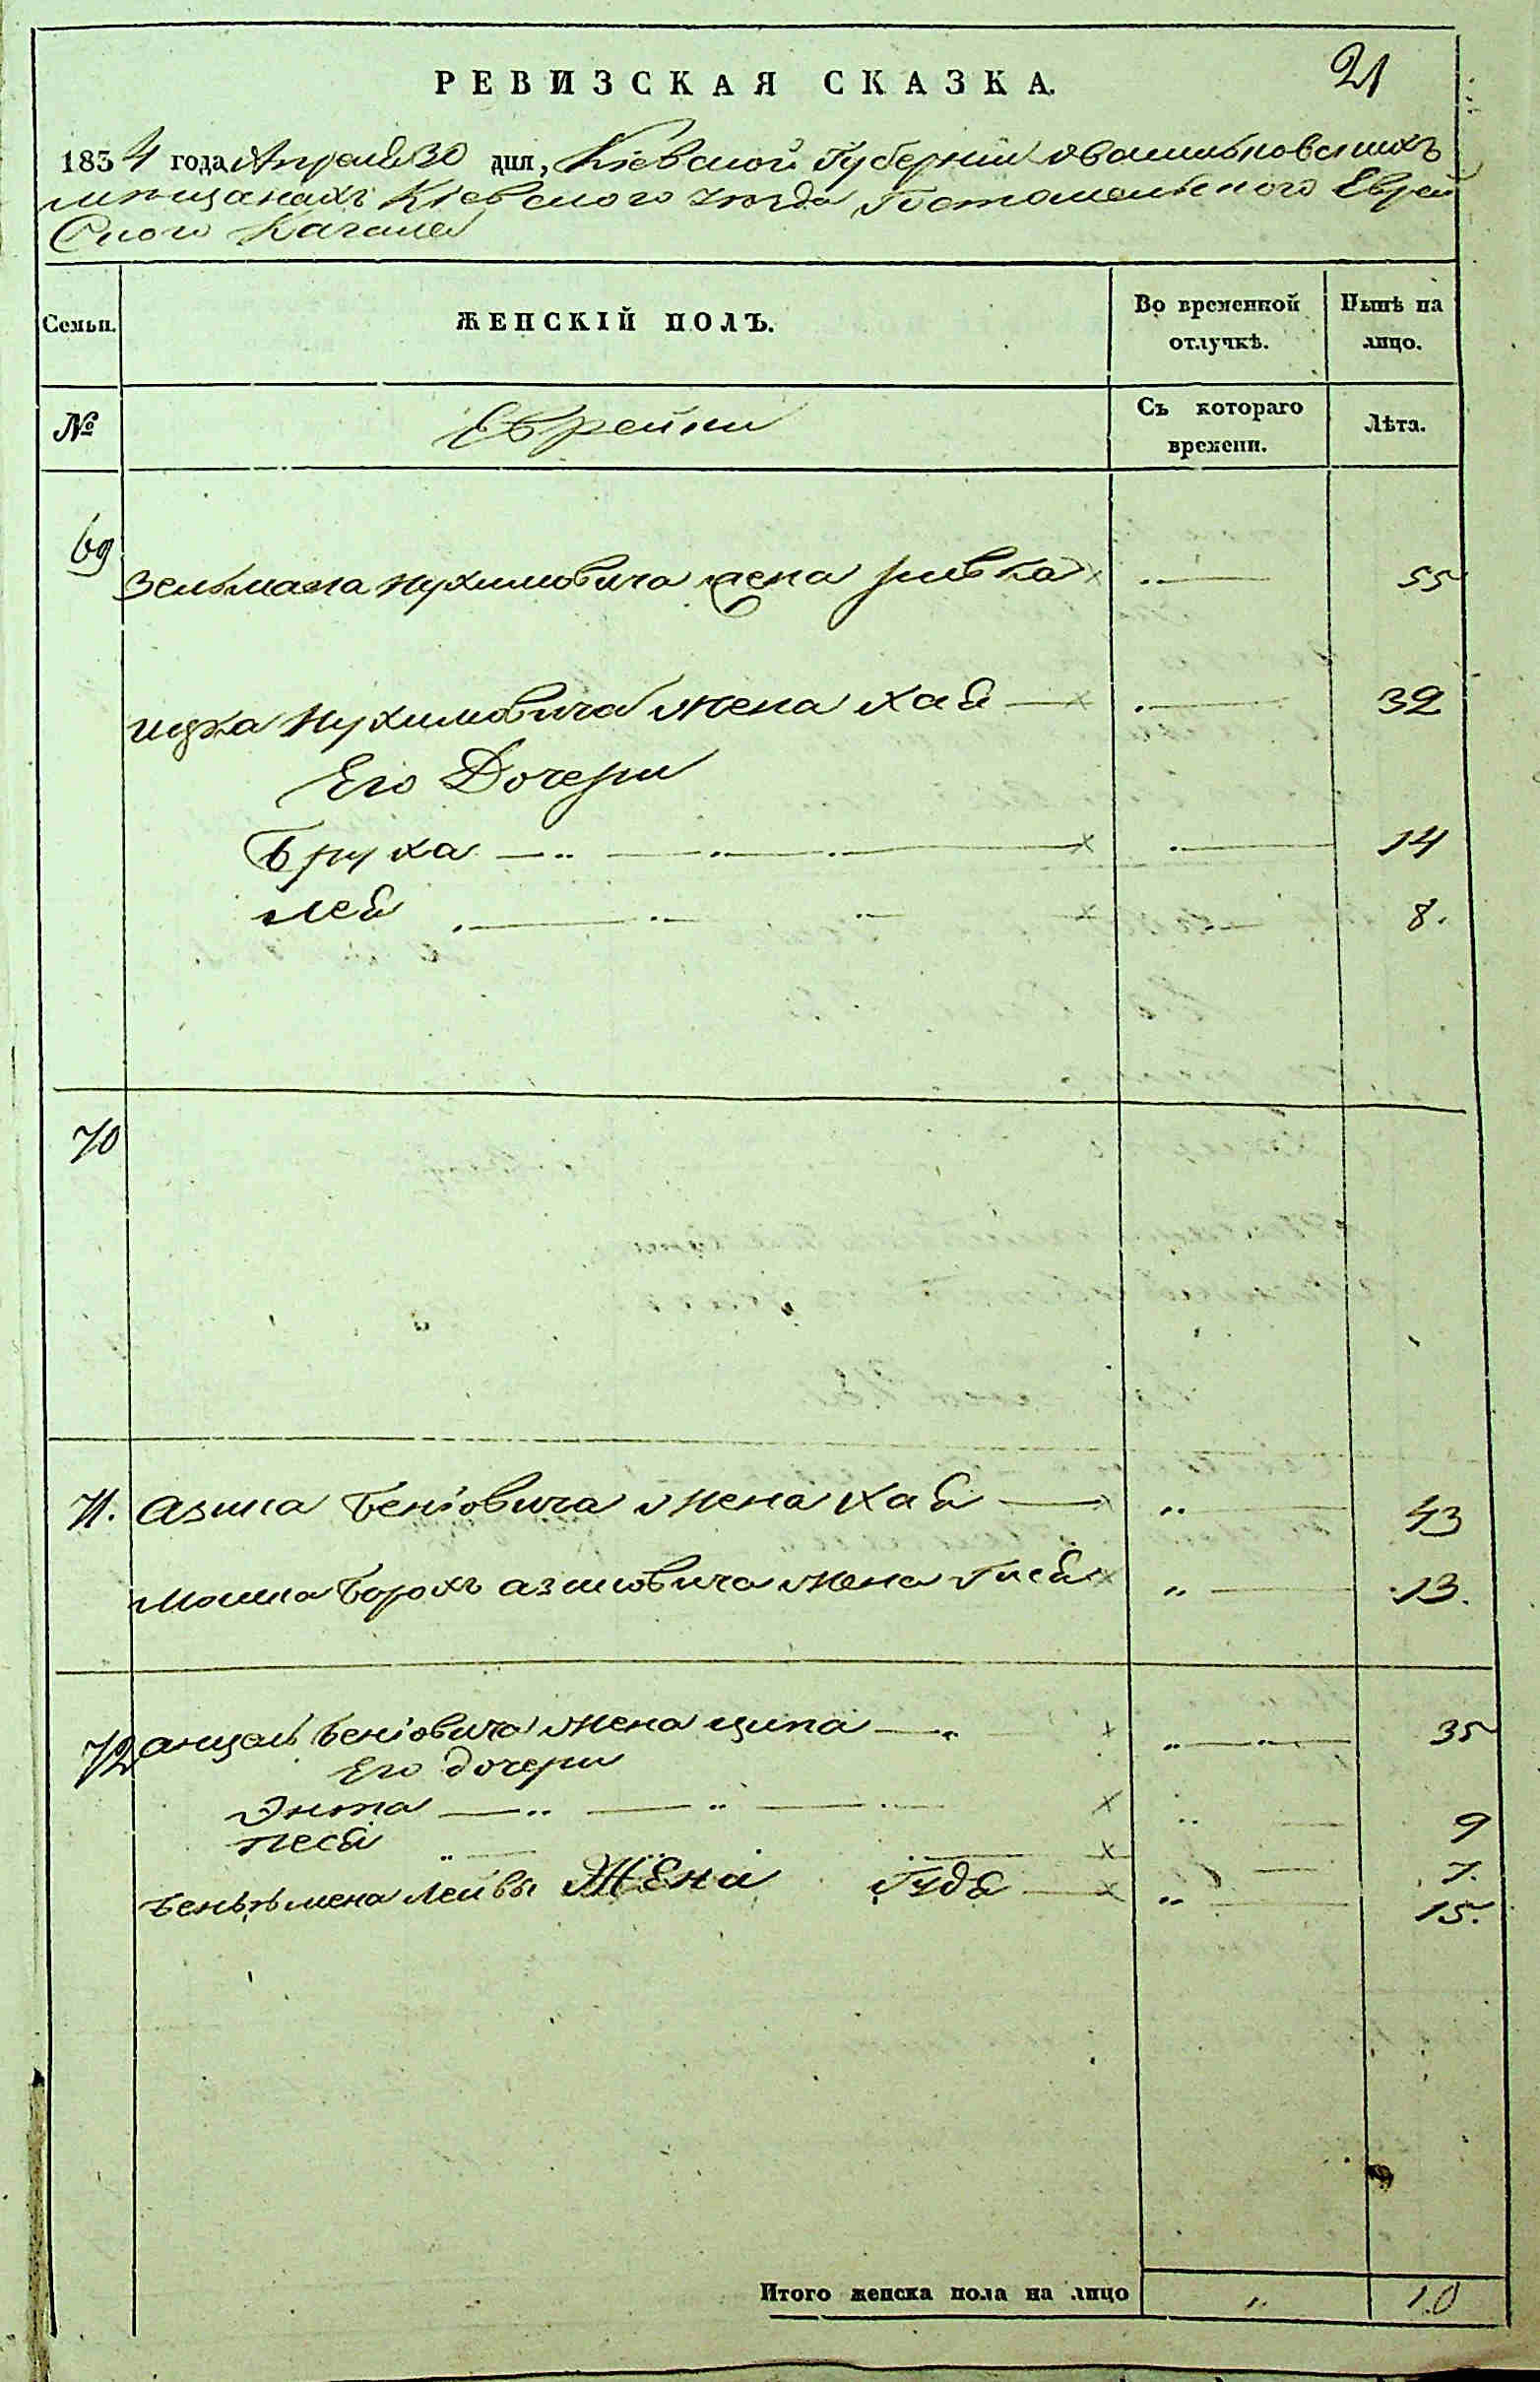 21
РЕВИЗСКАЯ СКАЗКА.
1834 года Апреля 30 дня, Кіевской Губерніи о васильковскихъ
мещанахъ Кіевского уезда Гостомельского Еврей
Ского Кагала
Семьи.
ЖЕНСКІЙ ПОЛЪ.
Во временной отлучкѣ.
Нынѣ на лицо.
№
Еврейки
Съ котораго времени.
Лѣта.
69
Зельмана Нухимовича жена ривка 55
ицка Нухимовича жена хая 32
Его Дочери
Бруха 14
лея 8.
70
71. азика Беніовича жена хая 43
Мошка Борохъ азиковича жена 13.
72 анцель Беніовича жена ципа 35
Его дочери
Энта 9
песя 7.
лейвы Жена Гудя 15.
Итого женска пола на лицо „ 10